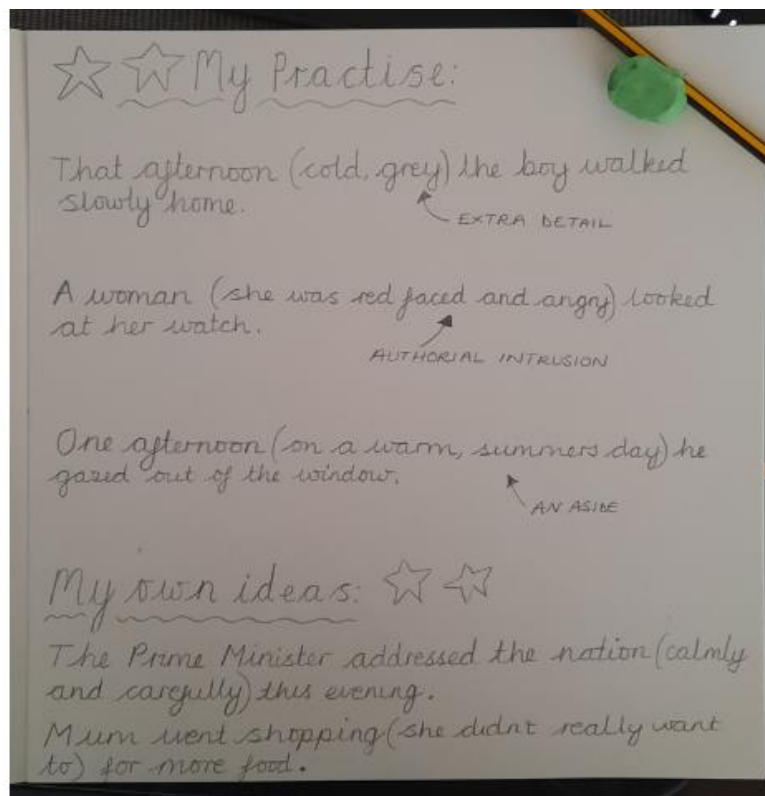 My Practise:
That afternoon (cold, grey) the boy walked
slowly home.
EXTRA DETAIL
A woman (she was red faced and angry) looked
at her watch.
AUTHORIAL INTRUSION
One afternoon (on a warm, summers day) he
gazed out of the window.
AN ASIDE
My own ideas:
The Prime Minister addressed the nation (calmly
and carefully) this evening.
Mum went shopping (she didnt really want
to) for more food.